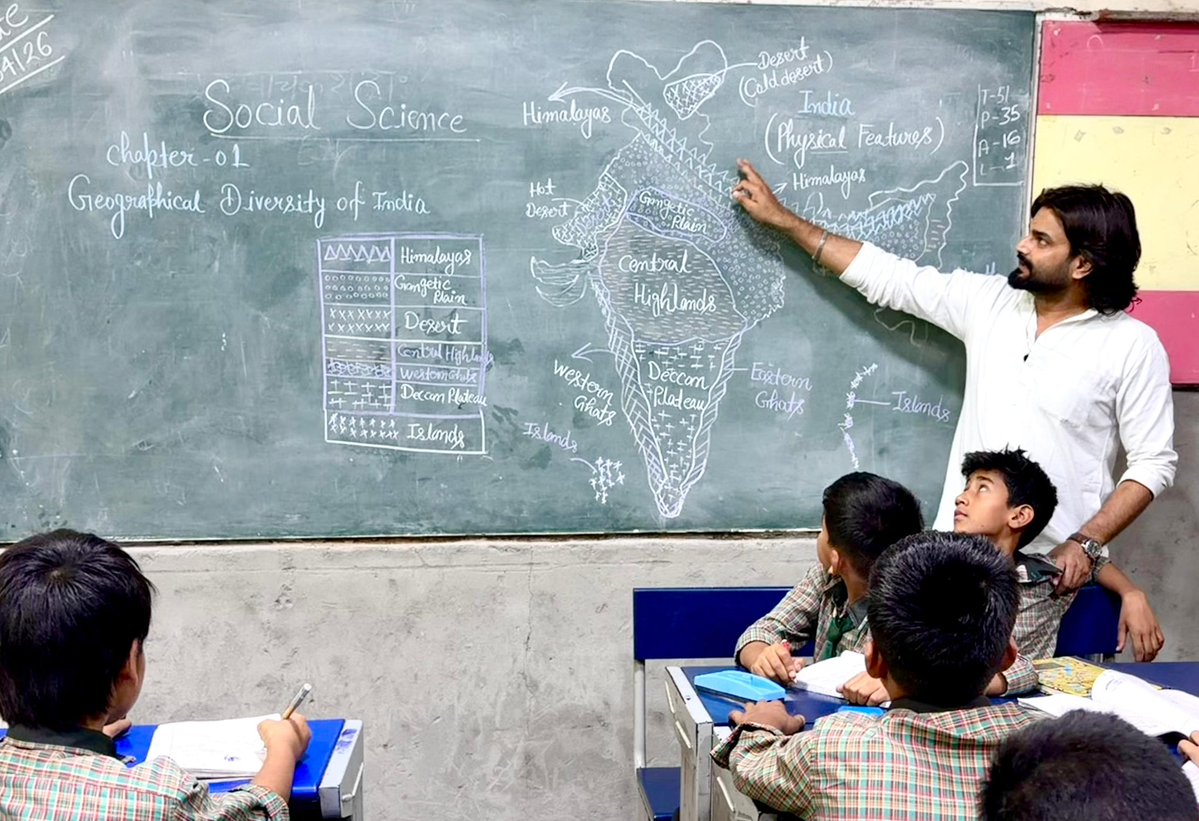 04/26
Social Science
Chapter-01
Geographical Diversity of India
Himalayas
Gangetic Plain
Desert
Central Highlands
Western Ghats
Deccan Plateau
Islands
Desert
(Cold desert)
Himalayas
India
(Physical Features)
T-51
P-35
A-16
L-1
Himalayas
Hot
Desert
Gangetic
Plain
Central
Highlands
Western
Ghats
Deccan
Plateau
Eastern
Ghats
Islands
Islands